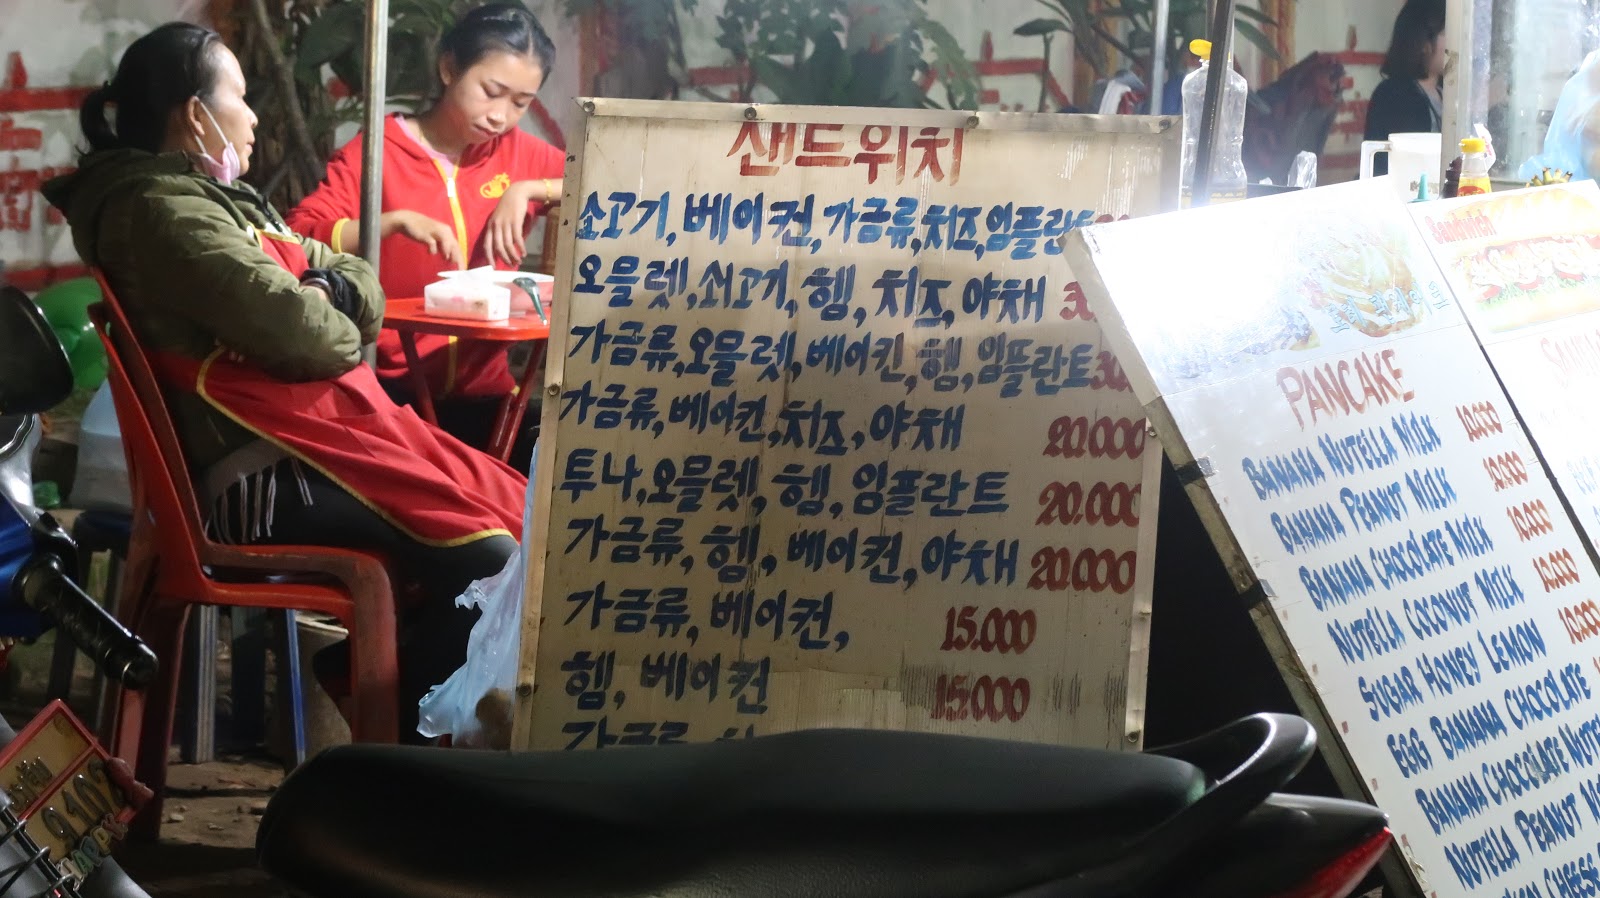 샌드위치
소고기, 베이컨, 가금류, 치즈, 임플란트
오믈렛, 쇠고기, 헴, 치즈, 야채
가금류, 오믈렛, 베이킨, 헴, 임플란트 30.
가금류, 베이컨, 치즈, 야채 20.000
투나, 오믈렛, 헴, 임플란트 20.000
가금류, 헴, 베이컨, 야채 20.000
가금류, 베이컨, 15.000
헴, 베이컨 15.000
가금류
PANCAKE
BANANA NUTELLA MILK 10.000
BANANA PEANUT MILK 10.000
BANANA CHOCOLATE MILK 10.000
NUTELLA COCONUT MILK 10.000
SUGAR HONEY LEMON 10.000
EGG BANANA CHOCOLATE
BANANA CHOCOLATE
NUTELLA PEANUT
CHEESE
Sandwich
9102
HAPPY